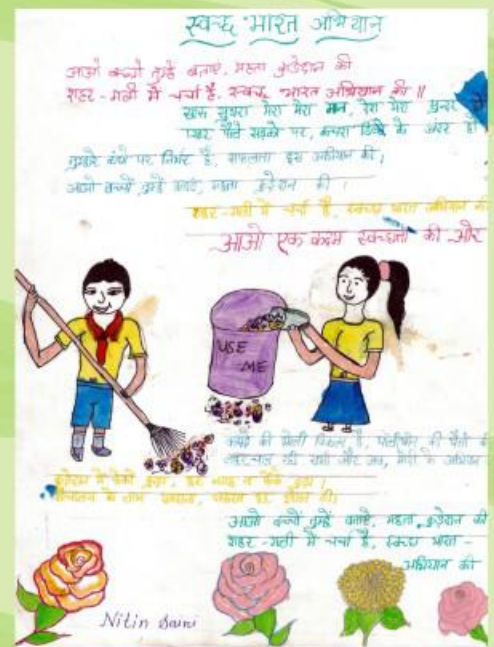 स्वच्छ भारत अभियान
आओ बच्चों तुम्हें बताएं, महता कूड़ेदान की
शहर-गली में चर्चा है, स्वच्छ भारत अभियान की ॥
साफ सुथरा मेरा मेरा मन, देश मेरा सुन्दर
सड़को पर, कचरा डिब्बे के अंदर हो
तुम्हारे कंधे पर निर्भर है, सफलता इस अभियान की,
आओ बच्चों, तुम्हें बताएं, महता कूड़ेदान की ।
शहर-गली में चर्चा है, स्वच्छ भारत अभियान की
आओ एक कदम स्वच्छता की और
USE
ME
कपड़े की थैली है, की थैली
और
कूड़ेदान में फेंको कूड़ा,
आओ बच्चों तुम्हें बताएं, महता, कूड़ेदान की
शहर-गली में चर्चा है, स्वच्छ भारत -
अभियान की
Nitin Saini